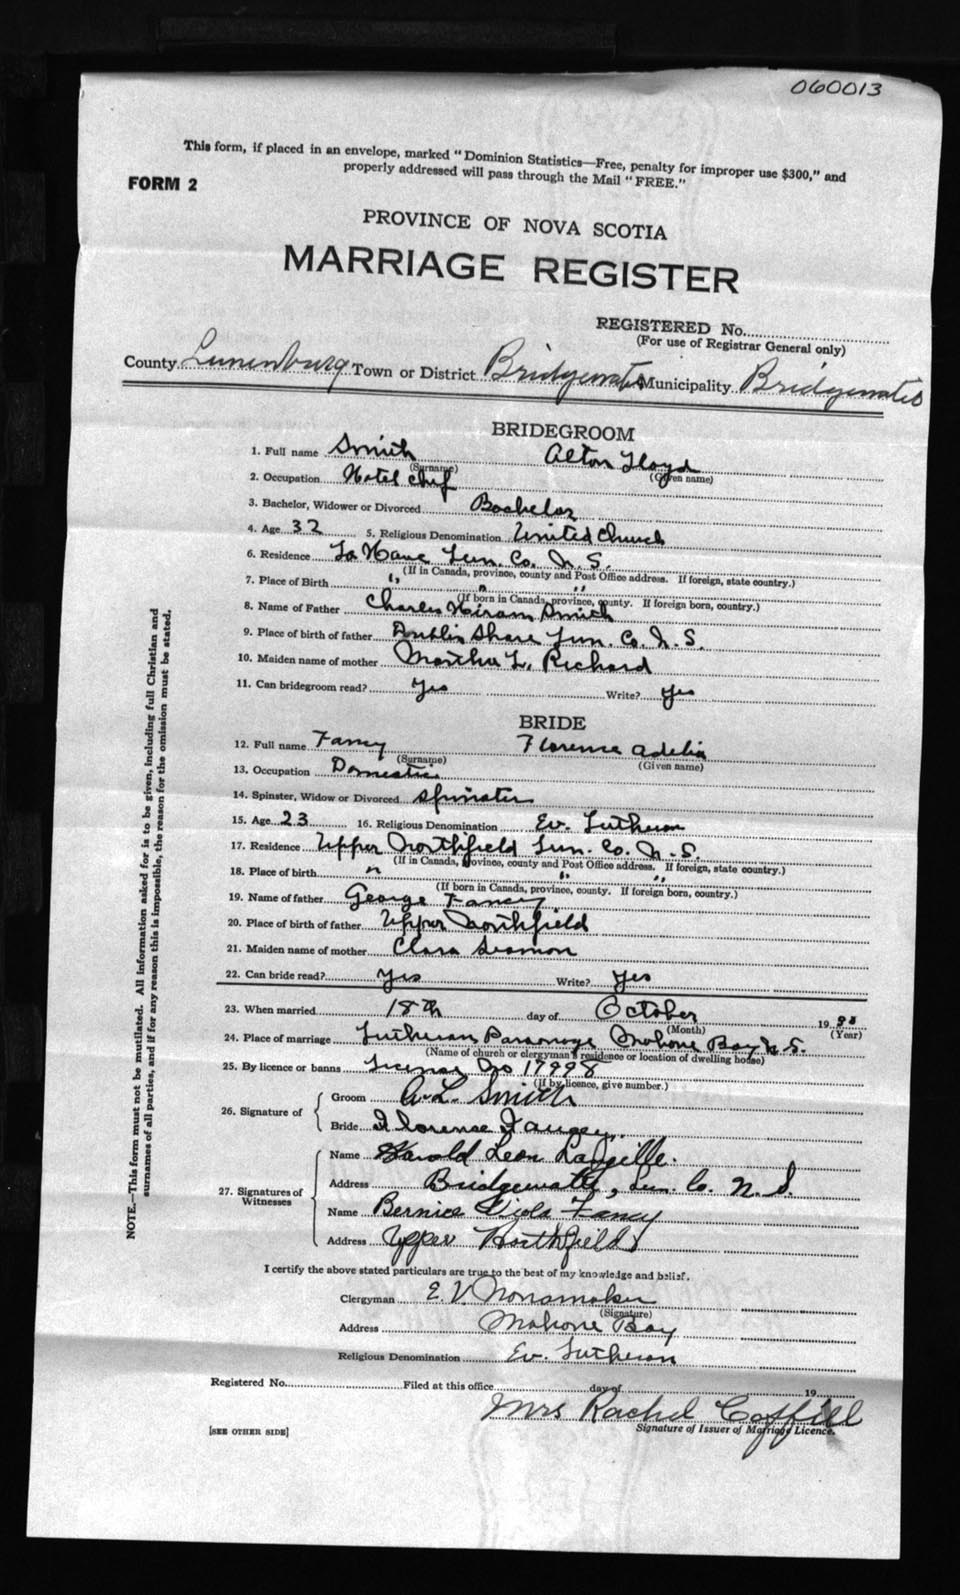 060013
This form, if placed in an envelope, marked "Dominion Statistics—Free, penalty for improper use $300," and
properly addressed will pass through the Mail "FREE."
FORM 2
PROVINCE OF NOVA SCOTIA
MARRIAGE REGISTER
REGISTERED No.
(For use of Registrar General only)
County Lunenburg Town or District Bridgewater Municipality Bridgewater
BRIDEGROOM
1. Full name Smith Alton Lloyd
(Surname) (Given name)
2. Occupation Hotel Chef
3. Bachelor, Widower or Divorced Bachelor
4. Age 32 5. Religious Denomination United Church
6. Residence La Have Lun. Co. N. S.
(If in Canada, province, county and Post Office address. If foreign, state country.)
7. Place of Birth " " "
(If born in Canada, province, county. If foreign born, country.)
8. Name of Father Charles Hiram Smith
9. Place of birth of father Dublin Shore Lun. Co. N. S.
10. Maiden name of mother Martha L. Richard
11. Can bridegroom read? Yes Write? Yes
BRIDE
12. Full name Fancy Florence Adelia
(Surname) (Given name)
13. Occupation Domestic
14. Spinster, Widow or Divorced Spinster
15. Age 23 16. Religious Denomination Ev. Lutheran
17. Residence Upper Northfield Lun. Co. N. S.
(If in Canada, province, county and Post Office address. If foreign, state country.)
18. Place of birth " " "
(If born in Canada, province, county. If foreign born, country.)
19. Name of father George Fancy
20. Place of birth of father Upper Northfield
21. Maiden name of mother Clara Seamon
22. Can bride read? Yes Write? Yes
23. When married 18th day of October 19
(Month) (Year)
24. Place of marriage Lutheran Parsonage Mahone Bay N. S.
(Name of church or clergyman's residence or location of dwelling house)
25. By licence or banns License No 17998
(If by licence, give number.)
26. Signature of
Groom A. L. Smith
Bride Florence Fancy
27. Signatures of Witnesses
Name Harold Leon Langille.
Address Bridgewater, Lun. Co. N. S.
Name Bernice Viola Fancy
Address Upper Northfield
I certify the above stated particulars are true to the best of my knowledge and belief.
Clergyman E. V. Nonamaker
(Signature)
Address Mahone Bay
Religious Denomination Ev. Lutheran
Registered No. Filed at this office day of 19
Mrs Rachel Coffill
Signature of Issuer of Marriage Licence.
[SEE OTHER SIDE]
NOTE.—This form must not be mutilated. All information asked for is to be given, including full Christian and
surnames of all parties, and if for any reason this is impossible, the reason for the omission must be stated.